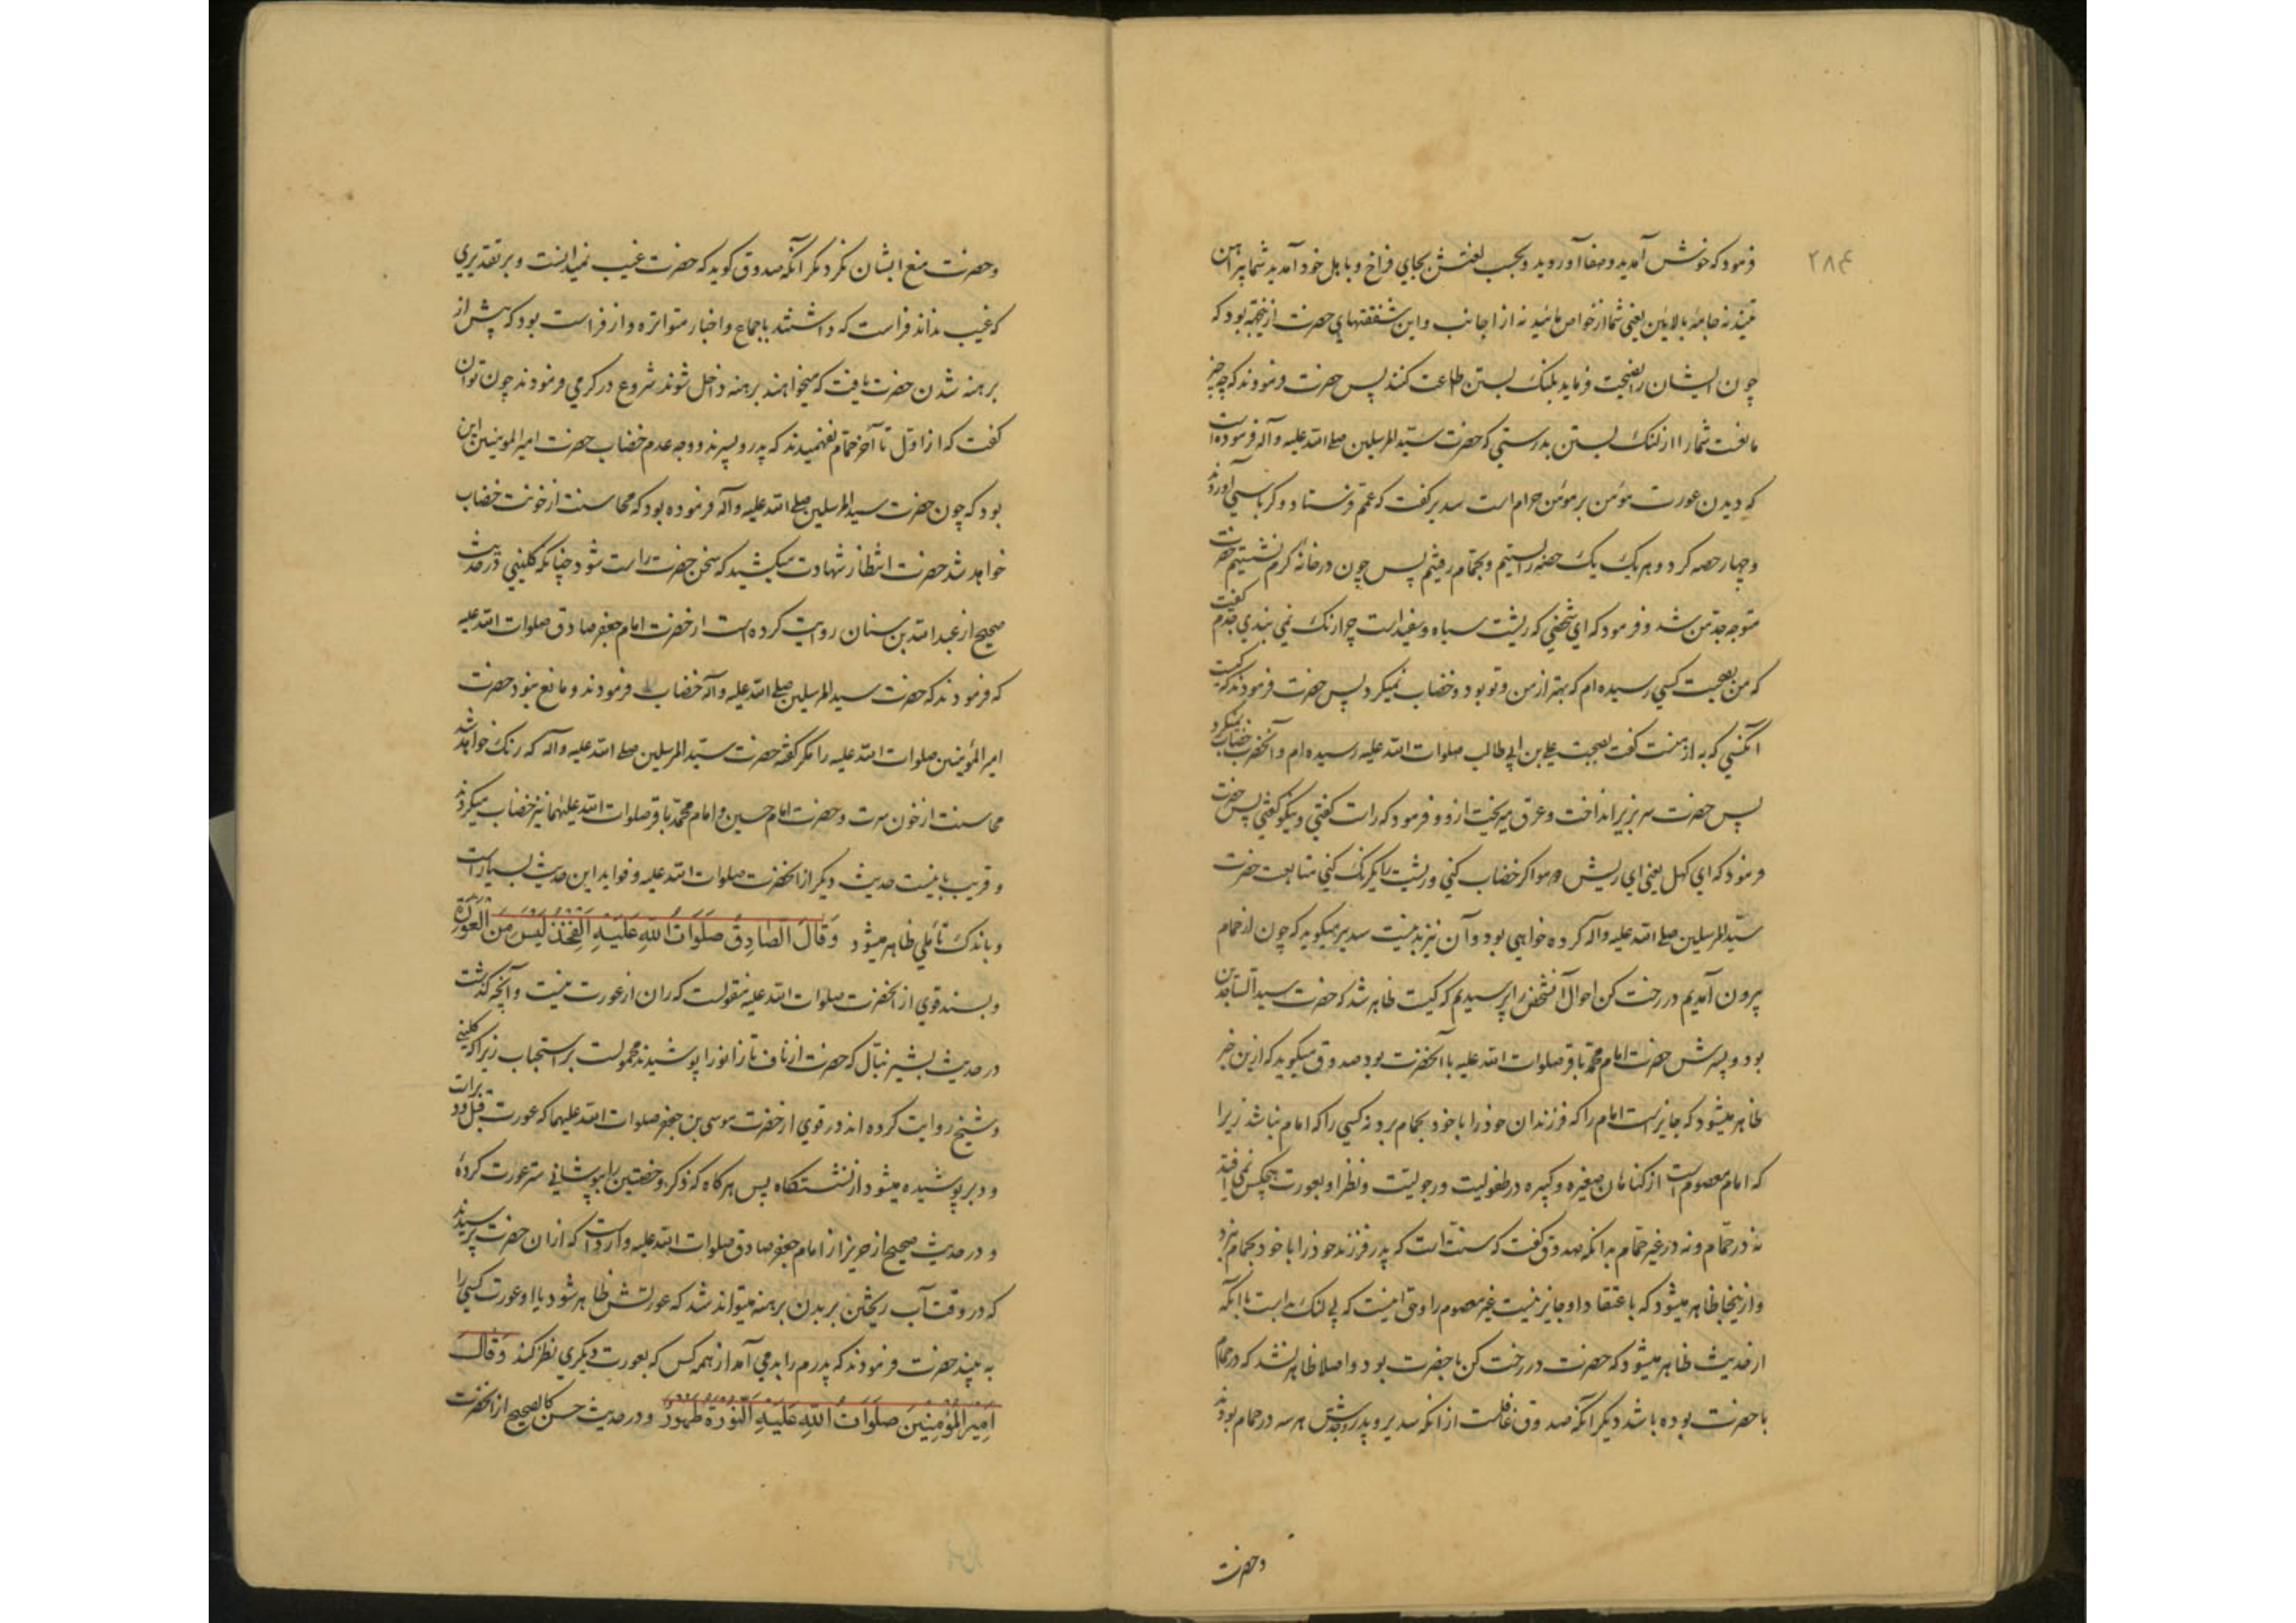 ۲۸۴
فرمود که خوش آمدید و صفا آوردید و بحسب لغتش بجای فراخ و باهل خود آمدید شما پیراهن
تنید نه جامهٔ بالائین یعنی شما از خواص مائید نه از اجانب و این شفقتهای حضرت ازینجهة بود که
چون ایشان را نصیحت فرماید بلنک بستن اطاعت کنند پس حضرت فرمودند که چه چیز
مانعست شما را از لنک بستن بدرستی که حضرت سید المرسلین صلی الله علیه و آله فرموده است
که دیدن عورت مؤمن بر مؤمن حرام است سدیر کفت که عمم فرستاد و کرباسی آوردند
و چهار حصه کرد و هر یک یک حصه را بستیم و بحمام رفتیم پس چون در خانه کرم نشستیم حضرت
متوجه جد من شد و فرمود که ای شخصی که ریشت سیاه و سفیدست چرا رنک نمی بندی جدم کفت
که من بصحبت کسی رسیده ام که بهتر از من و تو بود و خضاب نمیکرد پس حضرت فرمودند که کیست
آنکسی که به از منست کفت بصحبت علی بن ابی طالب صلوات الله علیه رسیده ام و آنحضرت خضاب نمیکرد
پس حضرت سر بزیر انداخت و عرق میریخت ازو و فرمود که راست کفتی و نیکو کفتی پس حضرت
فرمود که ای کهل یعنی ای ریش دو مو اگر خضاب کنی و ریشت را یکرنک کنی متابعت حضرت
سید المرسلین صلی الله علیه و آله کرده خواهی بود و آن نیز بد نیست سدیر میکوید که چون از حمام
بیرون آمدیم در رخت کن احوال آنشخص را پرسیدیم که کیست ظاهر شد که حضرت سید الساجدین
بود و پسرش حضرت امام محمد باقر صلوات الله علیه با آنحضرت بود صدوق میکوید که ازین خبر
ظاهر میشود که جایز است امام را که فرزندان خود را با خود بحمام برد نه کسی را که امام نباشد زیرا
که امام معصوم است از کناهان صغیره و کبیره در طفولیت و رجولیت و نظر او بعورت هیچکس نمی افتد
نه در حمام و نه در غیر حمام بدانکه صدوق کفت که سنت است که پدر فرزند خود را با خود بحمام نبرد
و ازینجا ظاهر میشود که باعتقاد او جایز نیست غیر معصوم را و حق اینست که بی لنک بد است با آنکه
از حدیث ظاهر میشود که حضرت در رخت کن با حضرت بود و اصلا ظاهر نشد که در حمام
با حضرت بوده باشد دیکر آنکه صدوق غافلست از آنکه سدیر و پدر و جدش هر سه در حمام بودند
و حضرت
و حضرت منع ایشان نکرد مکر آنکه صدوق کوید که حضرت غیب نمیدانست و بر تقدیری
که غیب نداند فراست که داشتند باجماع و اخبار متواتره و از فراست بود که پیش از
برهنه شدن حضرت یافت که میخواهند برهنه داخل شوند شروع در کرمی فرمودند چون توان
کفت که از اول تا آخر حمام نفهمیدند که پدر و پسرند و وجه عدم خضاب حضرت امیر المومنین این
بود که چون حضرت سید المرسلین صلی الله علیه و آله فرموده بود که محاسنت از خونت خضاب
خواهد شد حضرت انتظار شهادت میکشید که سخن حضرت راست شود چنانکه کلینی در حدیث
صحیح از عبد الله بن سنان روایت کرده است از حضرت امام جعفر صادق صلوات الله علیه
که فرمودند که حضرت سید المرسلین صلی الله علیه و آله خضاب فرمودند و مانع نبود حضرت
امیر المؤمنین صلوات الله علیه را مکر کفتهٔ حضرت سید المرسلین صلی الله علیه و آله که رنک خواهد شد
محاسنت از خون سرت و حضرت امام حسین و امام محمد باقر صلوات الله علیهما نیز خضاب میکردند
و قریب باینست حدیث دیکر از آنحضرت صلوات الله علیه و فواید این حدیث بسیار است
و باندک تأملی ظاهر میشود وَقَالَ الصَّادِقُ صَلَوَاتُ اللهِ عَلَیْهِ الْفَخِذُ لَیْسَ مِنَ الْعَوْرَةِ
و بسند قوی از آنحضرت صلوات الله علیه منقولست که ران از عورت نیست و آنچه گذشت
در حدیث بشیر نبال که حضرت از ناف تا زانو را پوشیدند محمولست بر استحباب زیرا که کلینی
و شیخ روایت کرده اند در قوی از حضرت موسی بن جعفر صلوات الله علیهما که عورت قبل و دبراست
و دبر پوشیده میشود از نشستکاه پس هرکاه که ذکر و خصیتین را بپوشانی ستر عورت کردهٔ
و در حدیث صحیح از حریز از امام جعفر صادق صلوات الله علیه وارد است که از آن حضرت پرسیدند
که در وقت آب ریختن بر بدن برهنه میتواند شد که عورتش ظاهر شود یا او عورت کسی را
به بیند حضرت فرمودند که پدرم را بد می آمد از همه کس که بعورت دیکری نظر کند وَقَالَ
اَمِیْرُ الْمُؤْمِنِیْنَ صَلَوَاتُ اللهِ عَلَیْهِ النُّوْرَةُ طَهُوْرٌ و در حدیث حسن کالصحیح از آنحضرت